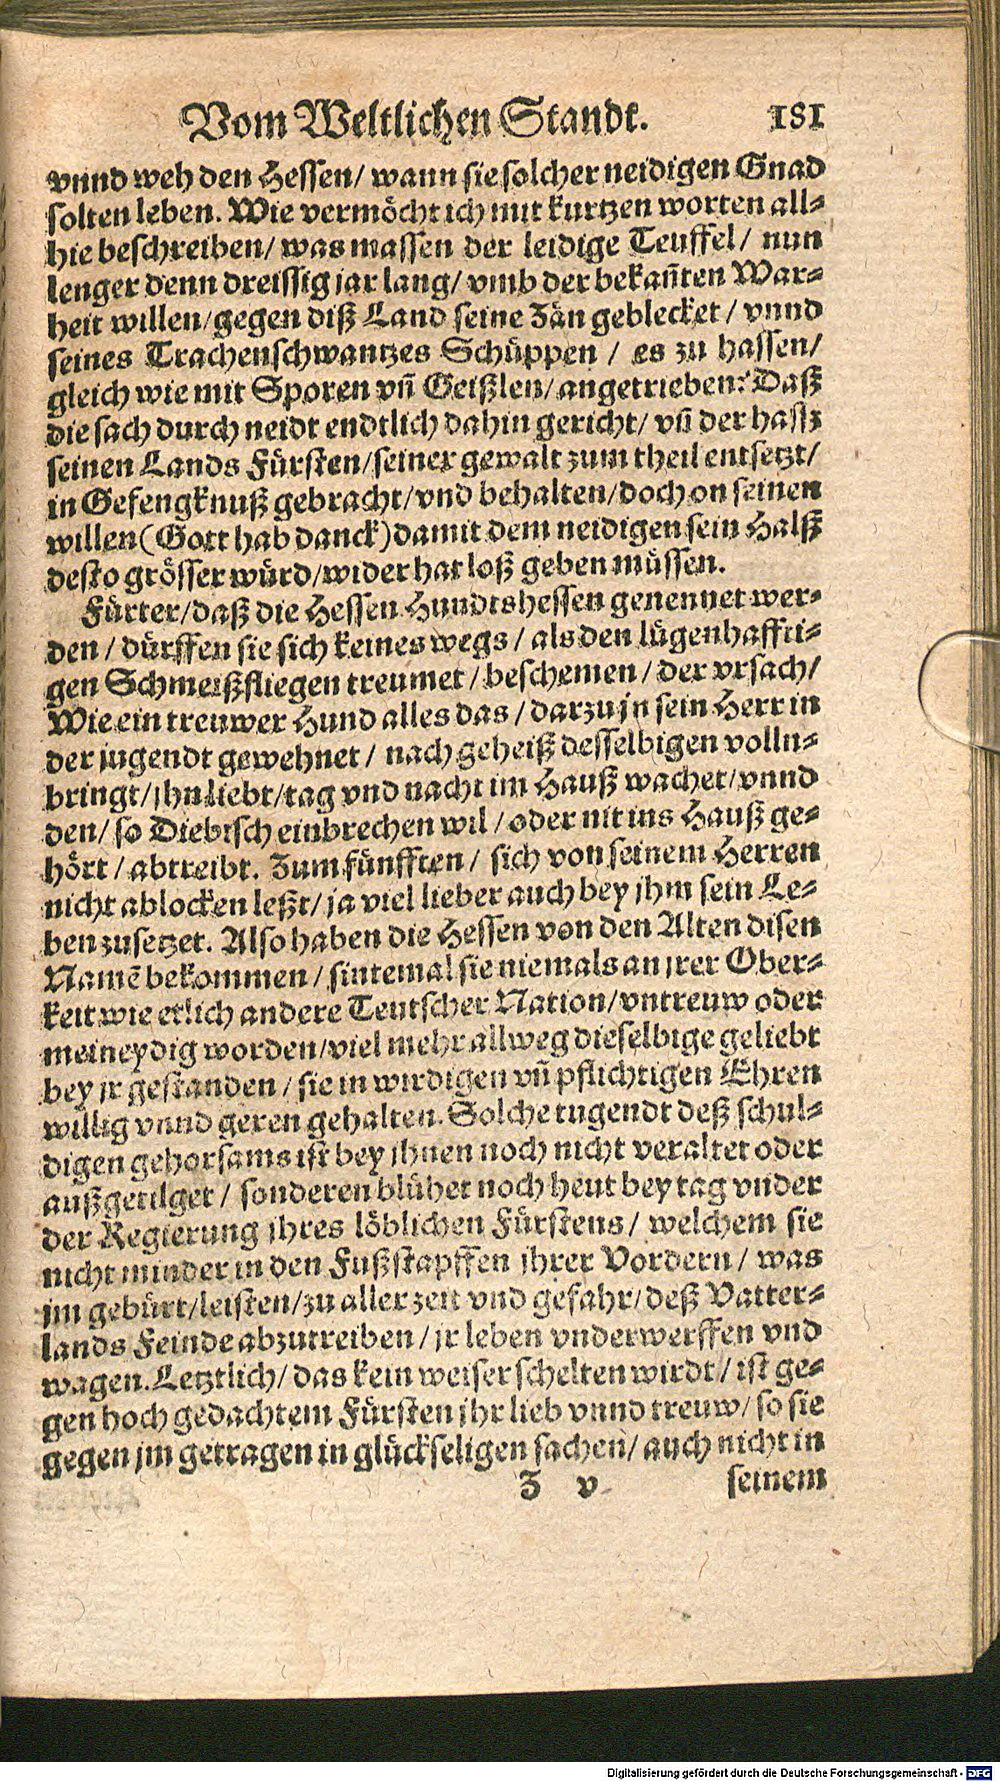 Vom Weltlichen Standt. 181
vnnd weh den Hessen/ wann sie solcher neidigen Gnad
solten leben. Wie vermöcht ich mit kurtzen worten all-
hie beschreiben/ was massen der leidige Teuffel/ nun
lenger denn dreissig jar lang/ vmb der bekañten War-
heit willen/gegen diß Land seine Zän geblecket/ vnnd
seines Trachenschwantzes Schüppen / es zu hassen/
gleich wie mit Sporen vñ Geißlen/ angetrieben: Daß
die sach durch neidt endtlich dahin gericht/ vñ der hassz
seinen Lands Fürsten/seiner gewalt zum theil entsetzt/
in Gefengknuß gebracht/vnd behalten/doch on seinen
willen(Gott hab danck)damit dem neidigen sein Halß
desto grösser würd/wider hat loß geben müssen.
Fürter/daß die Hessen Hundtshessen genennet wer-
den / dürffen sie sich keines wegs / als den lügenhaffti-
gen Schmeißfliegen treumet / beschemen / der vrsach/
Wie ein treuwer Hund alles das / darzu jn sein Herr in
der jugendt gewehnet / nach geheiß desselbigen volln-
bringt/jhn liebt/tag vnd nacht im Hauß wachet/vnnd
den/ so Diebisch einbrechen wil / oder nit ins Hauß ge-
hört / abtreibt. Zum fünfften / sich von seinem Herren
nicht ablocken leßt/ ja viel lieber auch bey jhm sein Le-
ben zusetzet. Also haben die Hessen von den Alten disen
Namē bekommen / sintemal sie niemals an jrer Ober-
keit wie etlich andere Teutscher Nation/vntreuw oder
meineydig worden/viel mehr allweg dieselbige geliebt
bey jr gestanden / sie in wirdigen vñ pflichtigen Ehren
willig vnnd geren gehalten. Solche tugendt deß schul-
digen gehorsams ist bey jhnen noch nicht veraltet oder
außgetilget / sonderen blühet noch heut bey tag vnder
der Regierung jhres löblichen Fürstens/ welchem sie
nicht minder in den Fußstapffen jhrer Vordern/ was
jm gebürt/leisten/zu aller zeit vnd gefahr/deß Vatter-
lands Feinde abzutreiben / jr leben vnderwerffen vnd
wagen. Letztlich/ das kein weiser schelten wirdt/ ist ge-
gen hoch gedachtem Fürsten jhr lieb vnnd treuw/ so sie
gegen jm getragen in glückseligen sachen/ auch nicht in
Z v seinem
Digitalisierung gefördert durch die Deutsche Forschungsgemeinschaft - DFG